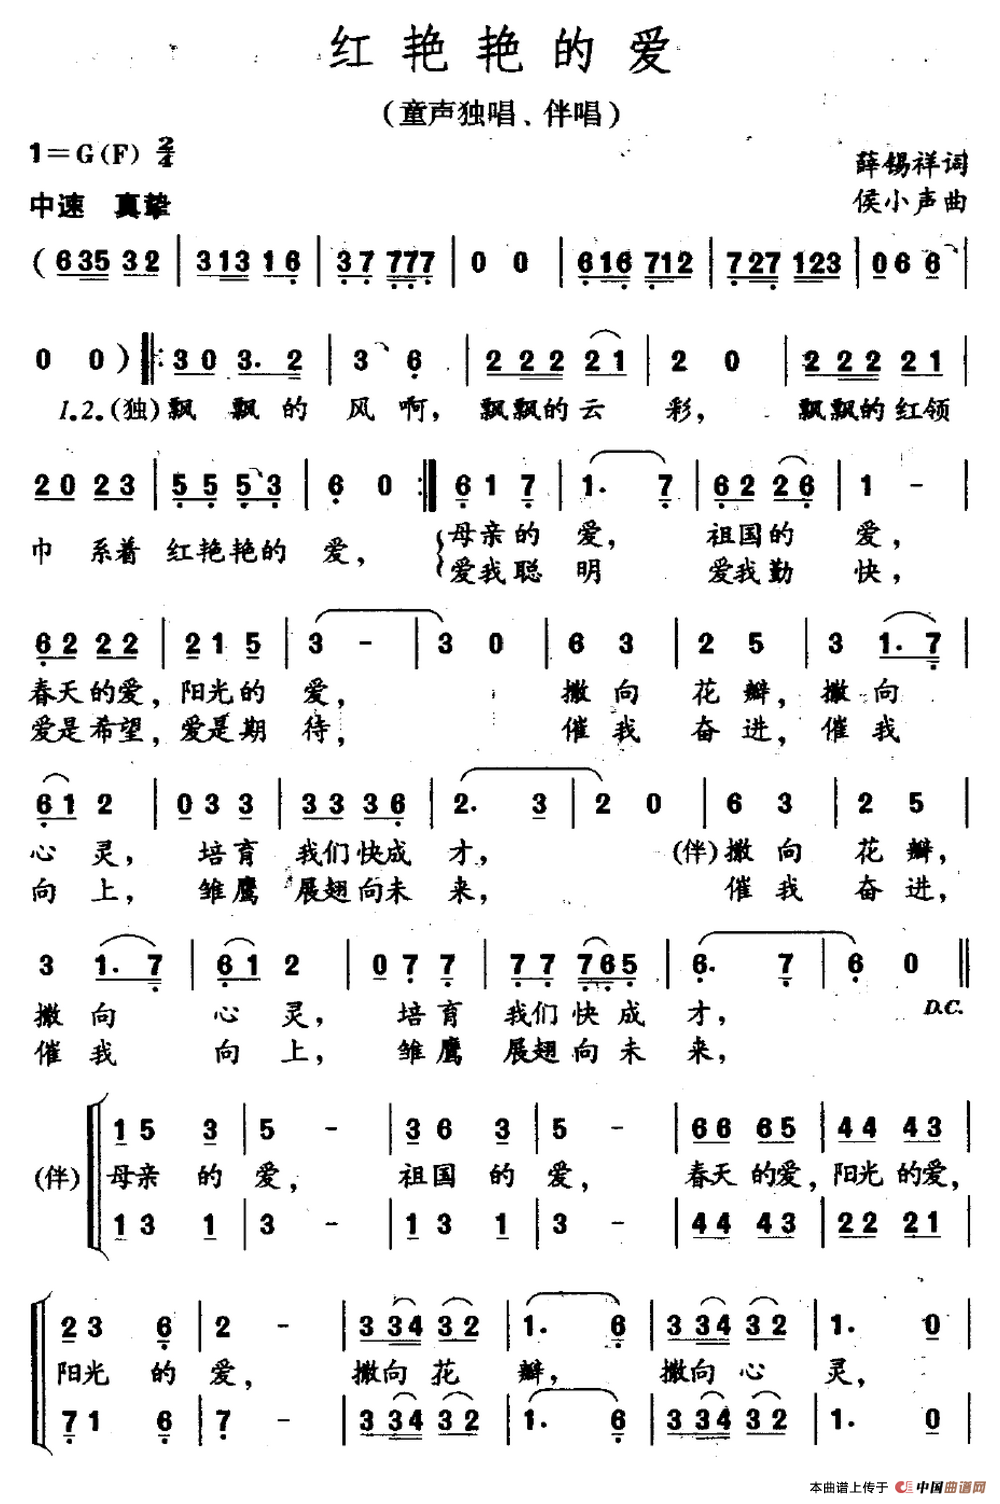 红艳艳的爱
（童声独唱、伴唱）
1＝G（F） 2/4
薛锡祥词
中速 真挚
侯小声曲
（ 635 32 | 313 16 | 37 777 | 0 0 | 616 712 | 727 123 | 06 6 |
0 0 ）‖: 30 3. 2 | 3 6 | 2 22 21 | 2 0 | 2 22 21 |
1.2.（独）飘 飘的 风啊， 飘飘的云 彩， 飘飘的红领
20 23 | 55 53 | 6 0 :‖ 61 7 | 1. 7 | 62 26 | 1 - |
巾 系着 红艳艳的 爱， 母亲的 爱， 祖国的 爱，
爱我聪 明 爱我勤 快，
62 22 | 21 5 | 3 - | 3 0 | 6 3 | 2 5 | 3 1. 7 |
春天的爱，阳光的 爱， 撒向 花瓣，撒向
爱是希望，爱是期 待， 催我 奋进，催我
61 2 | 03 3 | 33 36 | 2. 3 | 2 0 | 6 3 | 2 5 |
心 灵， 培育 我们快成 才， （伴）撒向 花瓣，
向 上， 雏鹰 展翅向未 来， 催我 奋进，
3 1. 7 | 61 2 | 07 7 | 77 765 | 6. 7 | 6 0 ‖
撒 向 心 灵， 培育 我们快成 才， D.C.
催 我 向 上， 雏鹰 展翅向未 来，
15 3 | 5 - | 36 3 | 5 - | 66 65 | 44 43 |
（伴） 母亲 的 爱， 祖国 的 爱， 春天 的爱，阳光 的爱，
13 1 | 3 - | 13 1 | 3 - | 44 43 | 22 21 |
23 6 | 2 - | 334 32 | 1. 6 | 334 32 | 1. 0 |
阳光 的 爱， 撒向 花 瓣， 撒向 心 灵，
71 6 | 7 - | 334 32 | 1. 6 | 334 32 | 1. 0 |
本曲谱上传于 中国曲谱网